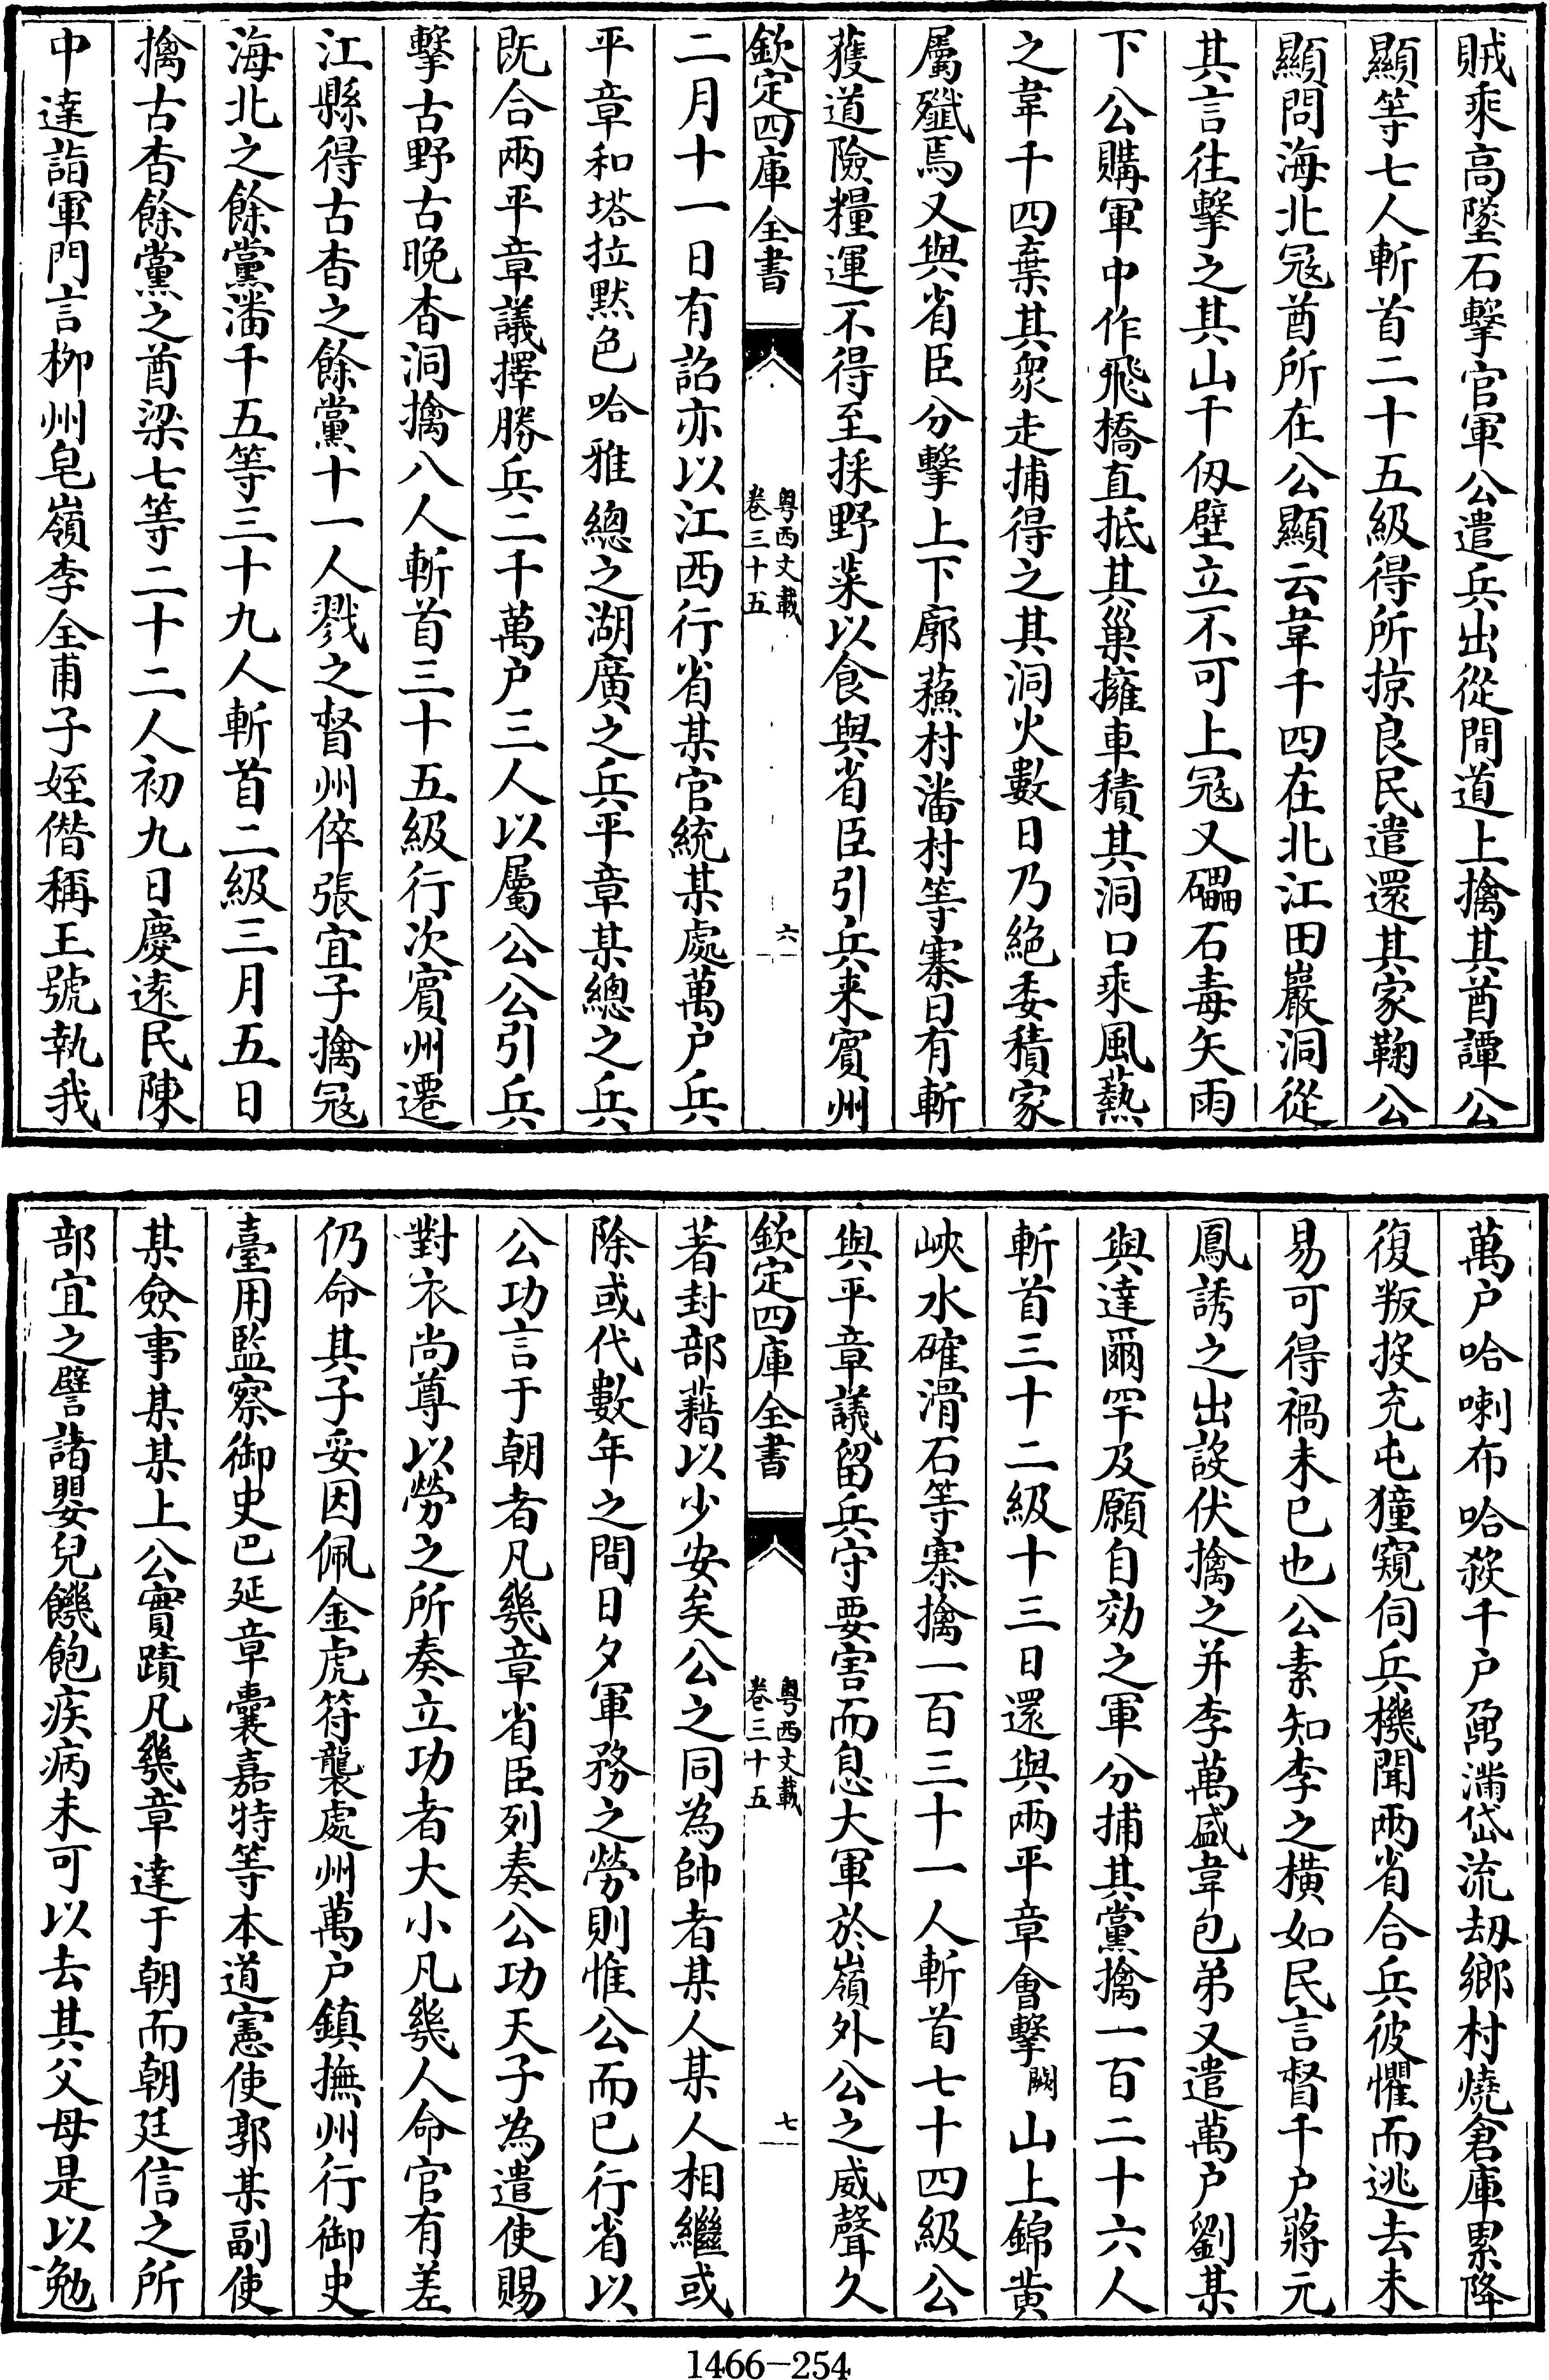 賊乘高墜石擊官軍公遣兵出從間道上擒其酋譚公
顯等七人斬首二十五級得所掠良民遣還其家鞠公
顯問海北冦酋所在公顯云韋千四在北江田巖洞從
其言往擊之其山千仭壁立不可上冦又礧石毒矢雨
下公購軍中作飛橋直抵其巢擁車積其洞口乘風爇
之韋千四棄其衆走捕得之其洞火數日乃絶委積家
屬殲焉又與省臣分擊上下廓蘓村潘村等寨日有斬
獲道險糧運不得至採野菜以食與省臣引兵来賓州
欽定四庫全書
粤西文載
卷三十五
六
二月十一日有詔亦以江西行省某官統某處萬户兵
平章和塔拉黙色哈雅總之湖廣之兵平章某總之兵
既合兩平章議擇勝兵二千萬户三人以屬公公引兵
擊古野古晚杳洞擒八人斬首三十五級行次賓州遷
江縣得古杳之餘黨十一人戮之督州倅張宜子擒冦
海北之餘黨潘千五等三十九人斬首二級三月五日
擒古杳餘黨之酋梁七等二十二人初九日慶遠民陳
中達詣軍門言栁州皂嶺李全甫子姪僭稱王號執我
萬户哈喇布哈殺千户鼐滿岱流刼鄉村燒倉庫累降
復叛投充屯獞窺伺兵機聞兩省合兵彼懼而逃去未
易可得禍未已也公素知李之横如民言督千户蔣元
鳳誘之出設伏擒之并李萬盛韋包弟又遣萬户劉某
與達爾罕及願自効之軍分捕其黨擒一百二十六人
斬首三十二級十三日還與兩平章會擊闕山上錦黄
峽水確滑石等寨擒一百三十一人斬首七十四級公
與平章議留兵守要害而息大軍於嶺外公之威聲久
欽定四庫全書
粤西文載
卷三十五
七
著封部藉以少安矣公之同為帥者某人某人相繼或
除或代數年之間日夕軍務之勞則惟公而已行省以
公功言于朝者凡幾章省臣列奏公功天子為遣使賜
對衣尚尊以勞之所奏立功者大小凡幾人命官有差
仍命其子妥因佩金虎符襲處州萬户鎮撫州行御史
臺用監察御史巴延章囊嘉特等本道憲使郭某副使
某僉事某某上公實蹟凡幾章達于朝而朝廷信之所
部宜之譬諸嬰兒饑飽疾病未可以去其父母是以勉
1466-254